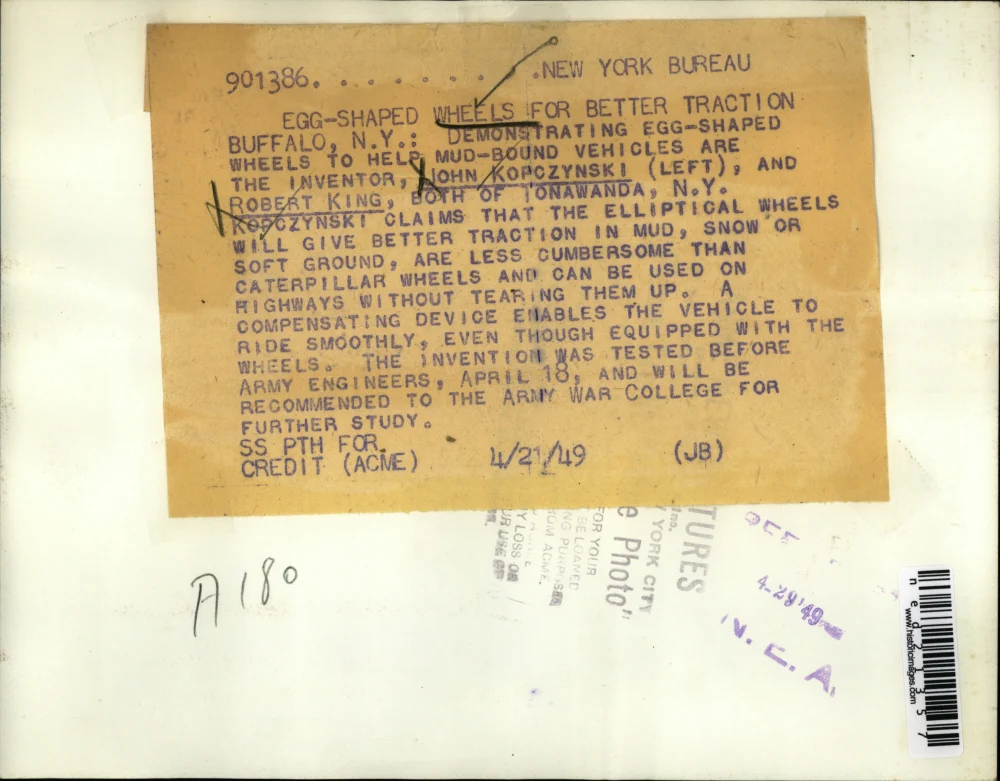 901386. . . . . . . . . .NEW YORK BUREAU
EGG-SHAPED WHEELS FOR BETTER TRACTION
BUFFALO, N.Y.: DEMONSTRATING EGG-SHAPED
WHEELS TO HELP MUD-BOUND VEHICLES ARE
THE INVENTOR, JOHN KOPCZYNSKI (LEFT), AND
ROBERT KING, BOTH OF TONAWANDA, N.Y.
KOPCZYNSKI CLAIMS THAT THE ELLIPTICAL WHEELS
WILL GIVE BETTER TRACTION IN MUD, SNOW OR
SOFT GROUND, ARE LESS CUMBERSOME THAN
CATERPILLAR WHEELS AND CAN BE USED ON
HIGHWAYS WITHOUT TEARING THEM UP. A
COMPENSATING DEVICE ENABLES THE VEHICLE TO
RIDE SMOOTHLY, EVEN THOUGH EQUIPPED WITH THE
WHEELS. THE INVENTION WAS TESTED BEFORE
ARMY ENGINEERS, APRIL 18, AND WILL BE
RECOMMENDED TO THE ARMY WAR COLLEGE FOR
FURTHER STUDY.
SS PTH FOR.
CREDIT (ACME) 4/21/49 (JB)
A180
TURES
Inc.
YORK CITY
e Photo"
FOR YOUR
BE LOANED
NG PURPOSES
OM ACME.
Y LOSS OR
UR USE OF
4-29'49
N. E. A.
ned21357
www.historicimages.com